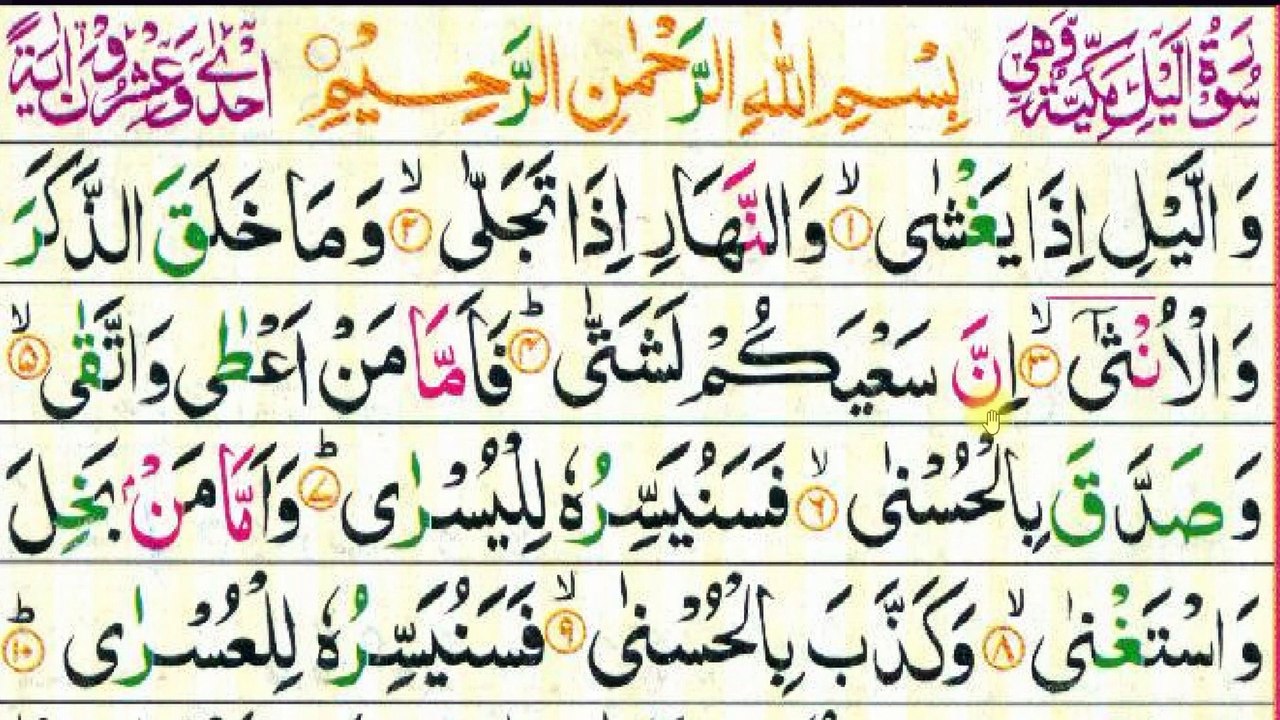 سُوْرَةُ الَّيْلِ مَكِّيَّةٌ وَّهِيَ بِسْمِ اللّٰهِ الرَّحْمٰنِ الرَّحِيْمِ اِحْدٰى وَعِشْرُوْنَ اٰيَةً
وَالَّيْلِ اِذَا يَغْشٰى ۙ﴿۱﴾ وَالنَّهَارِ اِذَا تَجَلّٰى ۙ﴿۲﴾ وَمَا خَلَقَ الذَّكَرَ
وَالْاُنْثٰۤى ۙ﴿۳﴾ اِنَّ سَعْيَكُمْ لَشَتّٰى ؕ﴿۴﴾ فَاَمَّا مَنْ اَعْطٰى وَاتَّقٰى ۙ﴿۵﴾
وَصَدَّقَ بِالْحُسْنٰى ۙ﴿۶﴾ فَسَنُيَسِّرُهٗ لِلْيُسْرٰى ؕ﴿۷﴾ وَاَمَّا مَنْۢ بَخِلَ
وَاسْتَغْنٰى ۙ﴿۸﴾ وَكَذَّبَ بِالْحُسْنٰى ۙ﴿۹﴾ فَسَنُيَسِّرُهٗ لِلْعُسْرٰى ؕ﴿۱۰﴾